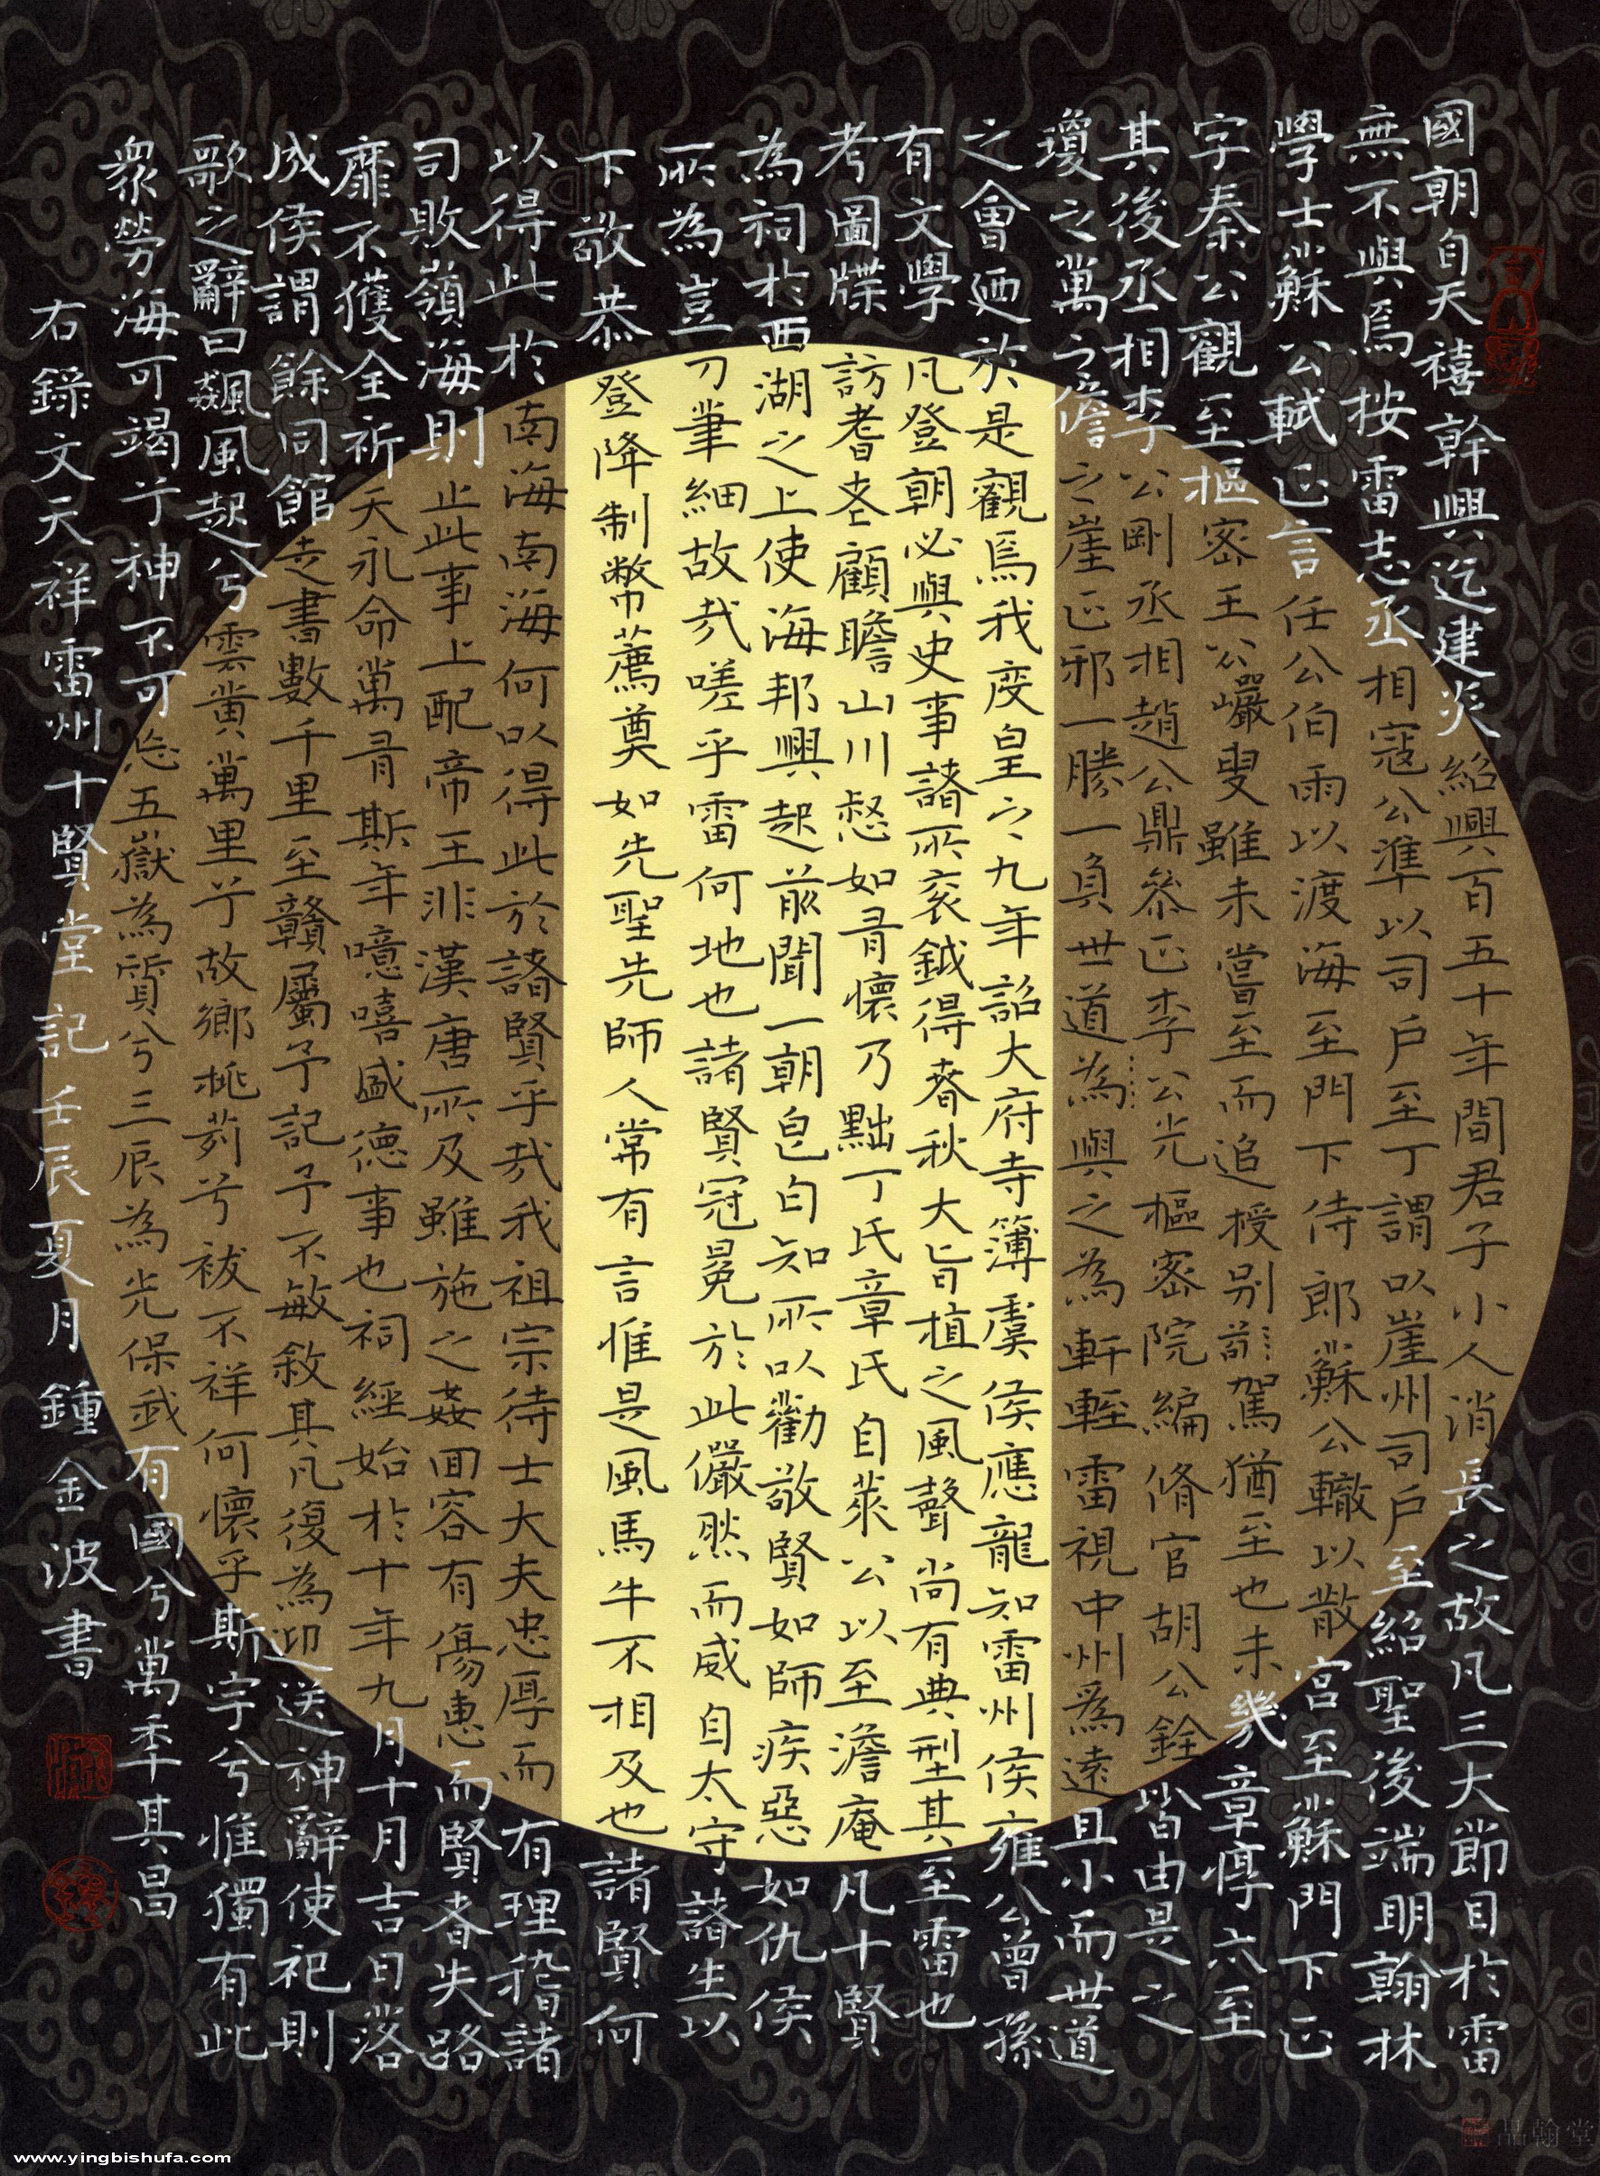 國朝自天禧幹興迄建炎紹興百五十年間君子小人消長之故凡三大節目於雷
無不與焉按雷志丞相寇公準以司戶至丁謂以崖州司戶至紹聖後端明翰林
學士蘇公軾正言任公伯雨以渡海至門下侍郎蘇公轍以散宮至蘇門下正
字秦公觀至樞密王公巖叟雖未嘗至而追授別駕猶至也未幾章惇亦至
其後丞相李公剛丞相趙公鼎參正李公光樞密院編脩官胡公銓皆由是之
瓊之萬之儋之崖正邪一勝一負世道為與之為軒輊雷視中州為遠且小而世道
之會迺於是觀焉我度皇之九年詔大府寺簿虞侯應龍知雷州侯雍公曾孫
有文學凡登朝必與史事諸所袞鉞得春秋大旨植之風聲尚有典型其至雷也
考圖牒訪耆老顧瞻山川惄如有懷乃黜丁氏章氏自萊公以至澹庵凡十賢
為祠於西湖之上使海邦興起前聞一朝皀白知所以勸敬賢如師疾惡如仇侯
所為豈刀筆細故哉嗟乎雷何地也諸賢冠冕於此儼然而威自太守諸生以
下敬恭登降制幣薦奠如先聖先師人常有言惟是風馬牛不相及也諸賢何
以得此於南海南海何以得此於諸賢乎哉我祖宗待士大夫忠厚而有理稽諸
司敗嶺海則止此事上配帝王非漢唐所及雖施之姦回容有傷惠而賢者失路
靡不獲全祈天永命萬有斯年噫嘻盛德事也祠經始於十年九月十月吉日落
成侯謂餘同館走書數千里至贛屬予記予不敏敘其凡復為迎送神辭使祀則
歌之辭曰飆風起兮雲黃萬里兮故鄉桃茢兮祓不祥何懷乎斯宇兮惟獨有此
眾勞海可竭兮神不可忘五嶽為質兮三辰為光保我有國兮萬年其昌
右錄文天祥雷州十賢堂記壬辰夏月鍾金波書
www.yingbishufa.com
品翰堂